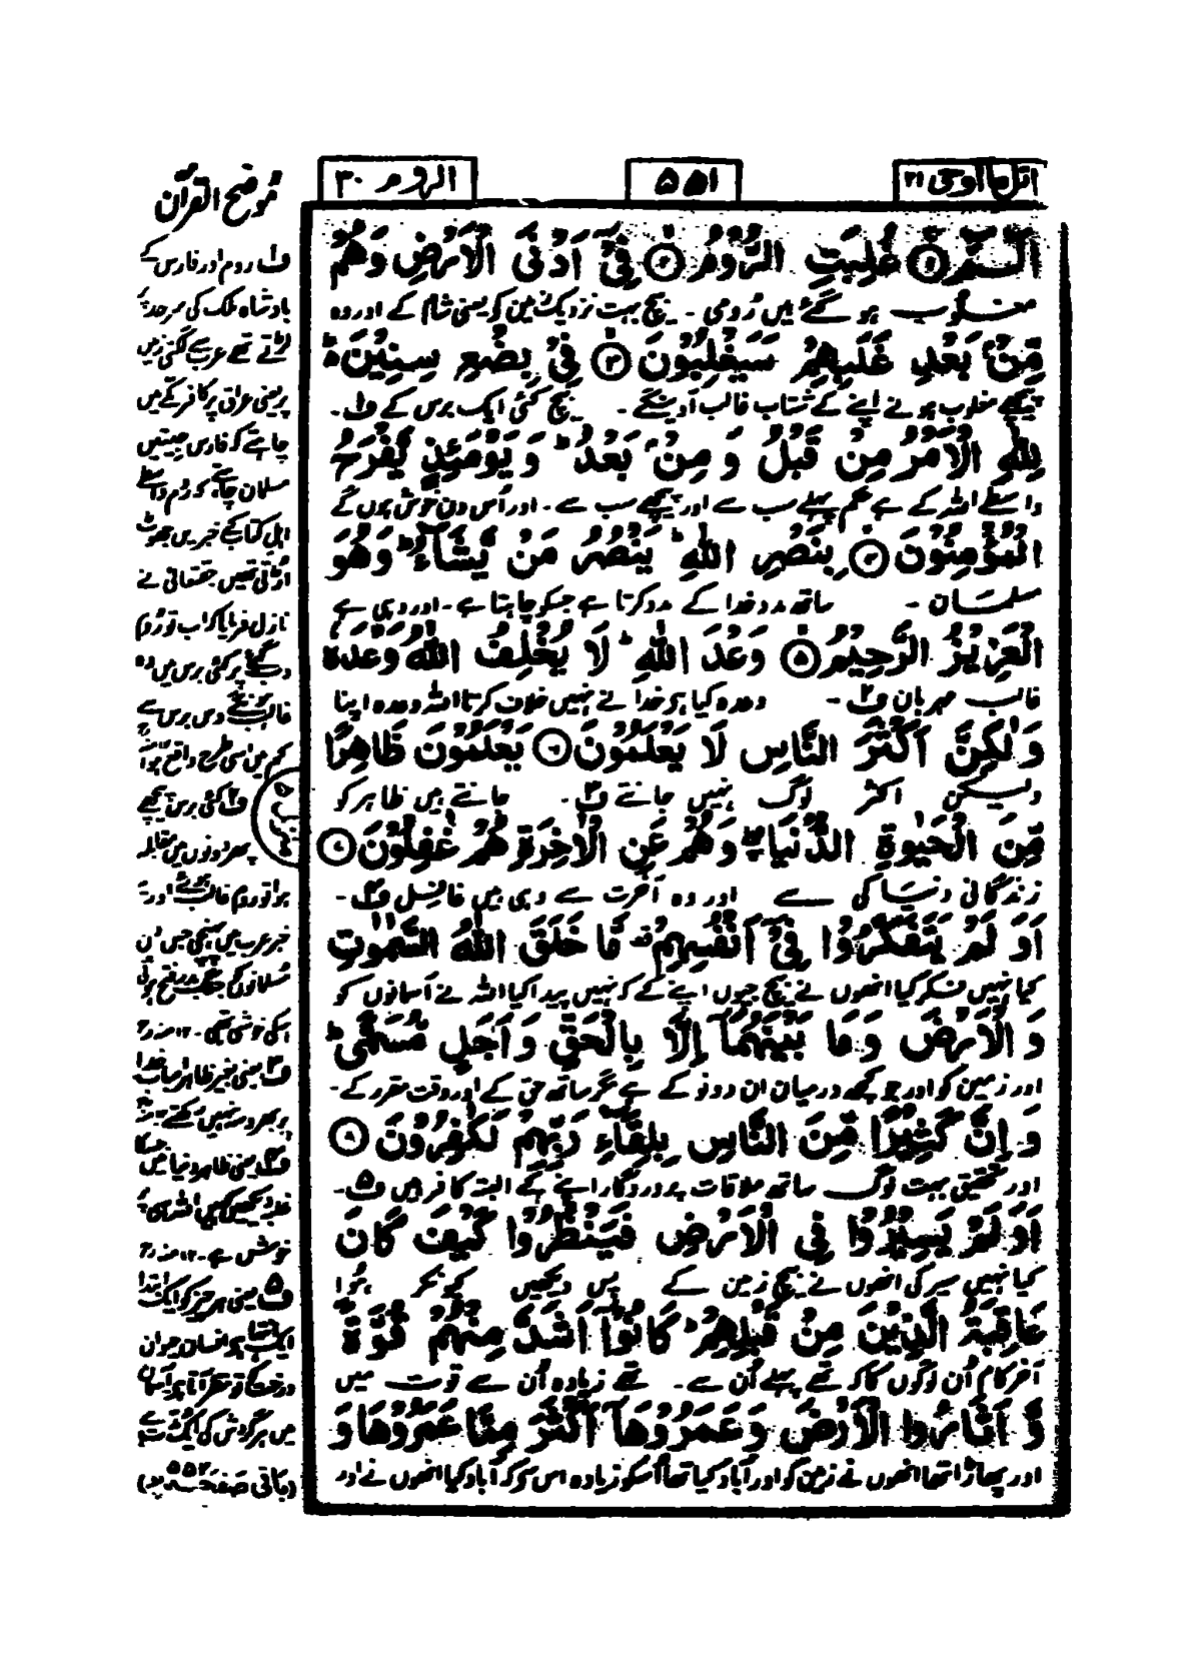 اتل مآ اوحی ۲۱
۵۵۱
الروم ۳۰
الٓـمّٓ ۝۱ غُلِبَتِ الرُّوْمُ ۝۲ فِیْۤ اَدْنَی الْاَرْضِ وَهُمْ
مغلوب ہو گئے ہیں رُومی ۔ بیچ بہت نزدیک زمین کو یعنی شام کے اور وہ
مِّنْۢ بَعْدِ غَلَبِهِمْ سَیَغْلِبُوْنَ ۝۳ فِیْ بِضْعِ سِنِیْنَ ؕ
پیچھے مغلوب ہونے اپنے کے شتاب غالب آوینگے ۔ بیچ کئی ایک برس کے ف۱۔
لِلّٰهِ الْاَمْرُ مِنْ قَبْلُ وَ مِنْۢ بَعْدُ ؕ وَ یَوْمَئِذٍ یَّفْرَحُ
واسطے اللہ کے ہے حکم پہلے سب سے اور پیچھے سب سے ۔ اور اُس دن خوش ہوں گے
الْمُؤْمِنُوْنَ ۝۴ بِنَصْرِ اللّٰهِ ؕ یَنْصُرُ مَنْ یَّشَآءُ ؕ وَهُوَ
مسلمان ۔ ساتھ مدد خدا کے مدد کرتا ہے جسکو چاہتا ہے ۔ اور وہی ہے
الْعَزِیْزُ الرَّحِیْمُ ۝۵ وَعْدَ اللّٰهِ ؕ لَا یُخْلِفُ اللّٰهُ وَعْدَهٗ
غالب مہربان ف۲۔ وعدہ کیا ہو خدا نے نہیں خلاف کرتا اللہ وعدہ اپنا
وَلٰكِنَّ اَكْثَرَ النَّاسِ لَا یَعْلَمُوْنَ ۝۶ یَعْلَمُوْنَ ظَاهِرًا
ولیکن اکثر لوگ نہیں جانتے ف۳۔ جانتے ہیں ظاہر کو
مِّنَ الْحَیٰوةِ الدُّنْیَا ۖۚ وَهُمْ عَنِ الْاٰخِرَةِ هُمْ غٰفِلُوْنَ ۝۷
زندگانی دنیا کی سے اور وہ آخرت سے وہی ہیں غافل ف۴۔
اَوَ لَمْ یَتَفَكَّرُوْا فِیْۤ اَنْفُسِهِمْ ۫ مَا خَلَقَ اللّٰهُ السَّمٰوٰتِ
کیا نہیں فکر کیا انھوں نے بیچ جیوں اپنے کے کہ نہیں پیدا کیا اللہ نے آسمانوں کو
وَ الْاَرْضَ وَ مَا بَیْنَهُمَاۤ اِلَّا بِالْحَقِّ وَ اَجَلٍ مُّسَمًّی ؕ
اور زمین کو اور جو کچھ درمیان ان دونو کے ہے مگر ساتھ حق کے اور وقت مقرر کے۔
وَ اِنَّ كَثِیْرًا مِّنَ النَّاسِ بِلِقَآئِ رَبِّهِمْ لَكٰفِرُوْنَ ۝۸
اور تحقیق بہت لوگ ساتھ ملاقات پروردگار اپنے کے البتہ کافر ہیں ف۵۔
اَوَ لَمْ یَسِیْرُوْا فِی الْاَرْضِ فَیَنْظُرُوْا كَیْفَ كَانَ
کیا نہیں سیر کی انھوں نے بیچ زمین کے پس دیکھیں کیونکر ہُوا
عَاقِبَةُ الَّذِیْنَ مِنْ قَبْلِهِمْ ؕ كَانُوْۤا اَشَدَّ مِنْهُمْ قُوَّةً
آخر کام اُن لوگوں کا کہ تھے پہلے اُن سے ۔ تھے زیادہ اُن سے قوت میں
وَّ اَثَارُوا الْاَرْضَ وَ عَمَرُوْهَاۤ اَكْثَرَ مِمَّا عَمَرُوْهَا وَ
اور پھاڑا تھا انھوں نے زمین کو اور آباد کیا تھا اُسکو زیادہ اس سے کہ آباد کیا انھوں نے اور
مُوضح القرآن
ف۱ روم اور فارس کے
بادشاہ ملک کی سرحد پر
لڑتے تھے عرب سے لگتی زمیں
پر یعنی عراق پر کافر مکے میں
چاہتے کہ فارس جیتیں
مسلمان چاہتے کہ روم واسطے
اہل کتاب کے خبریں جھوٹ
اڑتی تھیں حقتعالیٰ نے
نازل فرمایا کہ اب تو رُوم
دب گئے پر کئی برس میں وہ
غالب ہونگے دس برس سے
کم میں اسی طرح واقع ہُوا
ف۲ کئی برس پیچھے
پھر دونوں میں مقابلہ
ہوا تو روم غالب ہوئے اور یہ
خبر عرب میں پہنچی جس دن
مسلمانوں کو جنگ بدر میں فتح ہوئی
اسکی خوشی تھی ۔ ۱۲ منہ رح
ف۳ یعنی بغیر ظاہر اسباب خدا
پر بھروسہ نہیں رکھتے
ف۴ یعنی ظاہر دنیا میں جسکا
غلبہ دیکھیں کہیں اللہ اسی پر
خوش ہے ۔ ۱۲ منہ رح
ف۵ یعنی ہر چیز کو ایک ابتدا
ایک انتہا ہے انسان حیوان
درخت کو تو نظر آتا ہے آسمان
میں ہر گردش کی ایک مدت ہے
(باقی صفحہ ۵۵۲ پر)